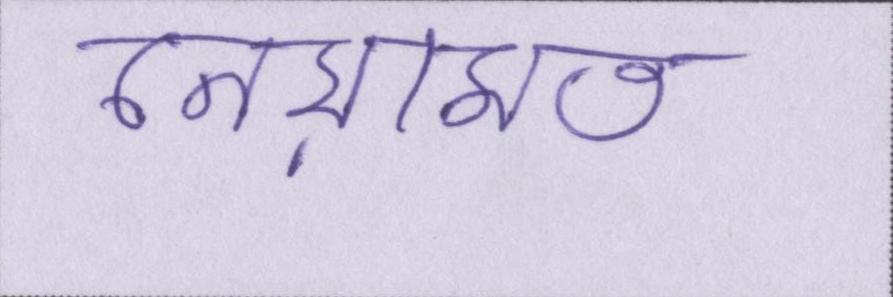 নেয়ামত